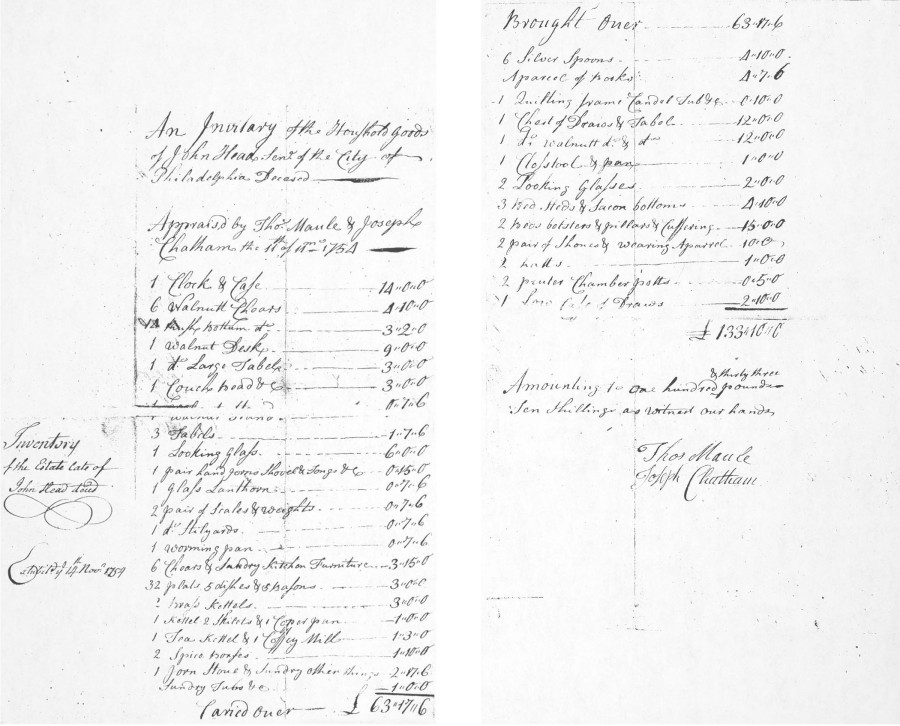 An Invitary of the Houshold Goods
of John Head Senr. of the City of
Philadelphia Deceased
Appraised by Thos. Maule & Joseph
Chatham the 11th of 11mo 1754
1 Clock & Case 14"0"0
6 Walnutt Chears 4"10"0
Rush Bottom do. 3"2"0
1 Walnut Desk 9"0"0
1 do. Large Tabels 3"0"0
1 Couch head &c 3"0"0
0"7"6
1 Walnut Stand
3 Tabels 1"7"6
1 Looking Glass 6"0"0
1 pair hand Jorns Shovel & Tongs &c 0"15"0
1 Glass Lanthorn 0"7"6
2 pair of Scales & weights 0"7"6
1 do. Stilyards 0"7"6
1 worming pan 0"7"6
6 Chears & Sundry Kitchen Furniture 3"15"0
32 plats 5 dishes & basons 3"0"0
brass Kettels 3"0"0
1 Kettel 2 Skilets & 1 Coper pan 1"0"0
1 Tea Kettel & 1 Coffey Mill 1"3"0
2 Spice boxses 1"10"0
1 Jorn Stove & Sundry other things 2"17"6
Sundry Tubs &c 1"0"0
Caried Over £ 63"17"6
Inventory
of the Estate late of
John Head decd
Exhibd. ye 14th Novr. 1754
Brought Over 63"17"6
6 Silver Spoons 4"10"0
A parcel of books 4"7"6
1 Quilting frame Candel Tub &c 0"10"0
1 Chest of Draws & Tabel 12"0"0
1 do. walnutt do. & do. 12"0"0
1 Closstool & pan 1"0"0
2 Looking Glasses 2"0"0
3 Bed Steds & Sacon bottoms 4"10"0
2 beds bolsters & pillars & Cuffering 15"0"0
2 pair of Shones & wearing Aparrel 10"0"0
2 hatts 1"0"0
2 peuter Chamber potts 0"5"0
1 Low Case of Draws 2"10"0
£ 133"10"0
& thirty three
Amounting to one hundred pounds
Ten Shillings as witnes our hands
Thos Maule
Joseph Chatham